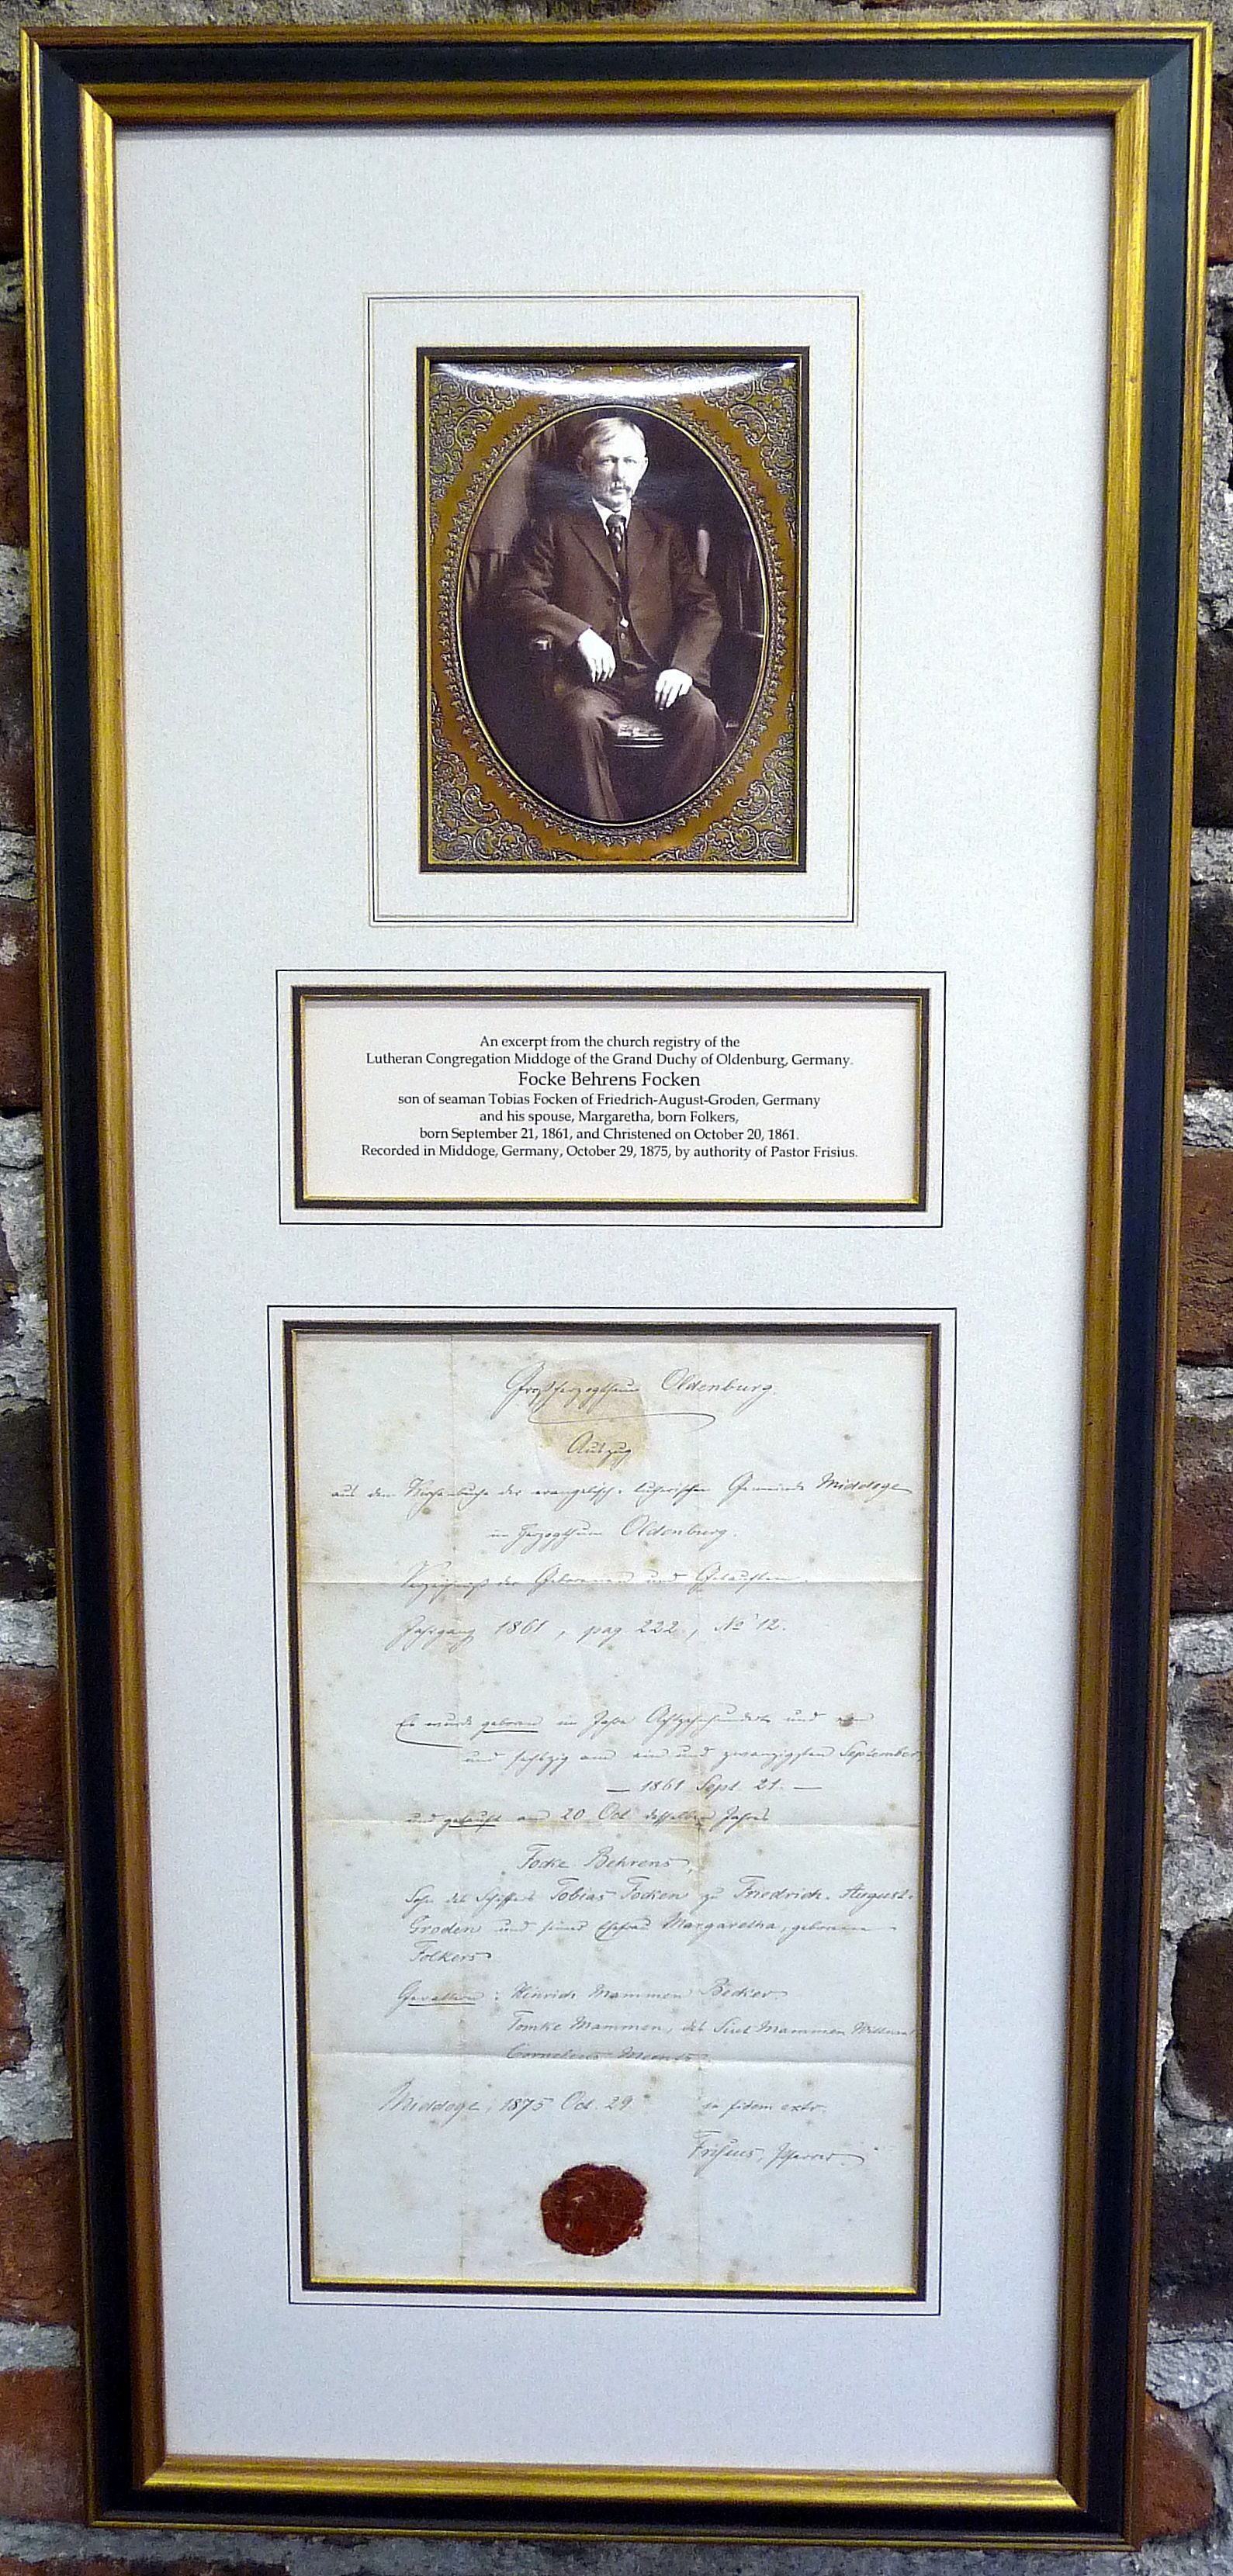 An excerpt from the church registry of the
Lutheran Congregation Middoge of the Grand Duchy of Oldenburg, Germany.
Focke Behrens Focken
son of seaman Tobias Focken of Friedrich-August-Groden, Germany
and his spouse, Margaretha, born Folkers,
born September 21, 1861, and Christened on October 20, 1861.
Recorded in Middoge, Germany, October 29, 1875, by authority of Pastor Frisius.
Großherzogthum Oldenburg.
Auszug
aus dem Kirchenbuche der evangelisch-lutherischen Gemeinde Middoge
im Herzogthum Oldenburg.
Verzeichniß der Geborenen und Getauften.
Jahrgang 1861, pag. 222, No 12.
Es wurde geboren im Jahre Achtzehnhundert und ein
und sechszig am ein und zwanzigsten September
— 1861 Sept. 21. —
und getauft am 20 Oct. desselben Jahres
Focke Behrens,
Sohn des Schiffers Tobias Focken zu Friedrich-August-
Groden und seiner Ehefrau Margaretha, geborene
Folkers
Gevattern: Hinrich Mammen Becker
Tomke Mammen, des Mammen
Cornelius
Middoge, 1875 Oct. 29 in fidem extr.
Frisius, Pfarrer.